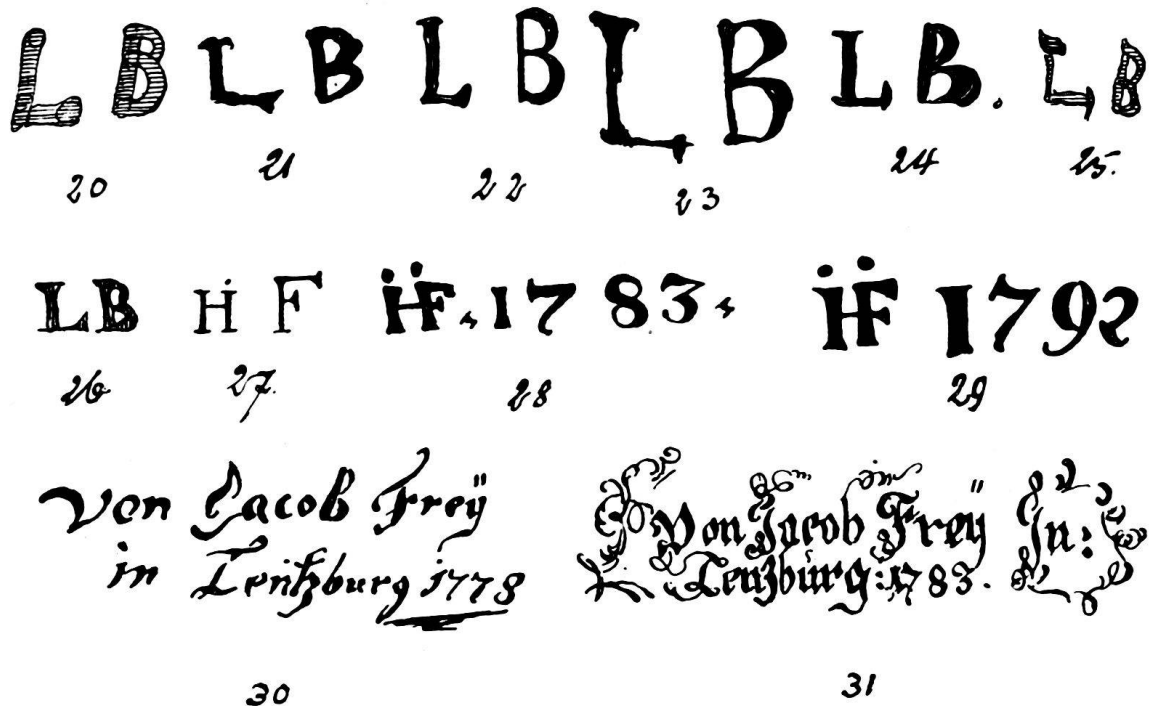 L B L B L B L B L B. L B
20 21 22 23 24 25.
LB HF HF. 1783. HF 1792
26 27. 28 29
Von Jacob Freÿ
in Lentzburg 1778
Von Jacob Freÿ In:
Lenzburg: 1783.
30 31